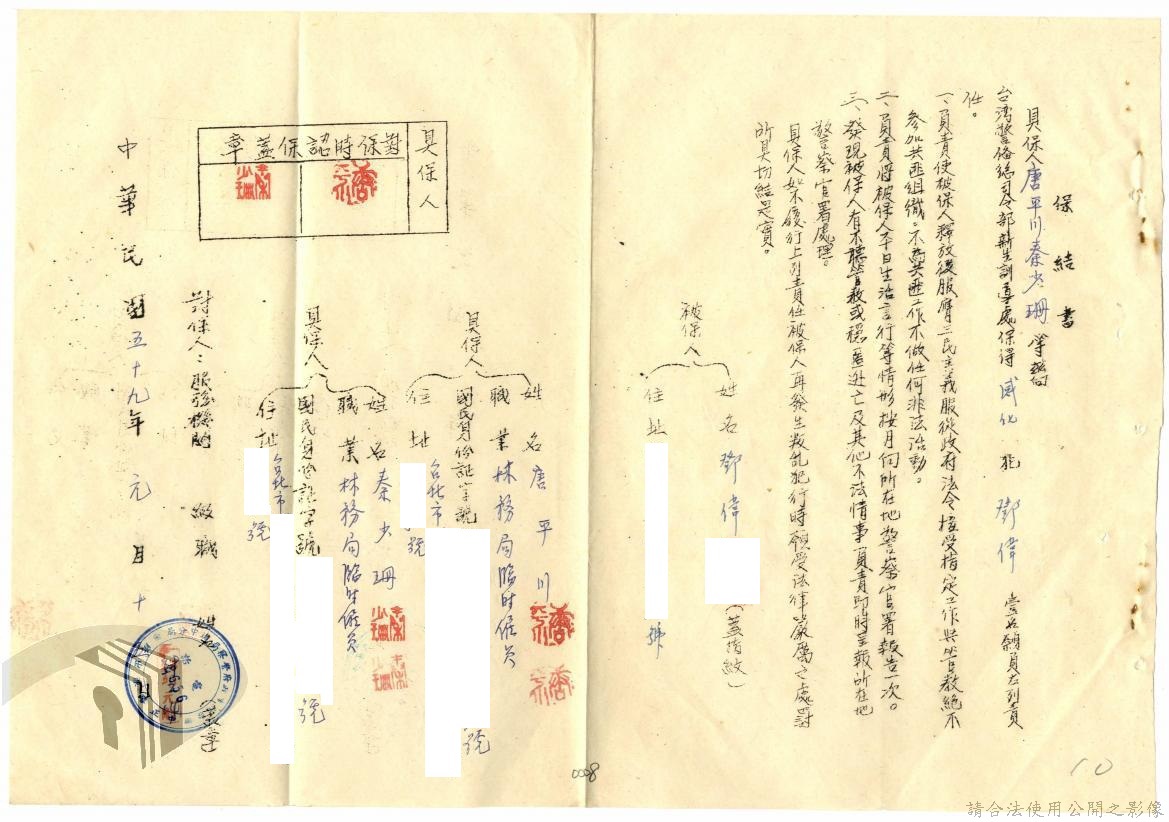 保結書
具保人唐平川秦少珊掌據向
台湾警备總司令部新生訓導處保得感化犯鄧偉壹名願負左列責
任。
一、負責使被保人釋放後服膺三民主義服從政府法令接受指定工作與管教絕不
参加共匪組織。不為共匪工作不做任何非法活動。
二、負責將被保人平日生活言行等情形按月向所在地警察官署報告一次。
三、發現被保人有不聽管教或穩匿逃亡及其他不法情事負責即時呈報所在地
警察官署處理。
具保人如不履行上列責任被保人再發生叛乱犯行時願受法律嚴厲之處罰
所具切結是實。
被保人
姓名鄧偉(蓋指紋)
住址 號
具保人
姓名唐平川
職業林務局臨时僱員
國民身份証字號 號
住址台北市 號
具保人
姓名秦少珊
職業林務局臨时僱員
國民身份証字號 號
住址台北市 號
具保人
對保時認保蓋章
對保人:服務機関 級職 姓名 蓋章
中華民國五十九年元月十
0008
10
請合法使用公開之影像